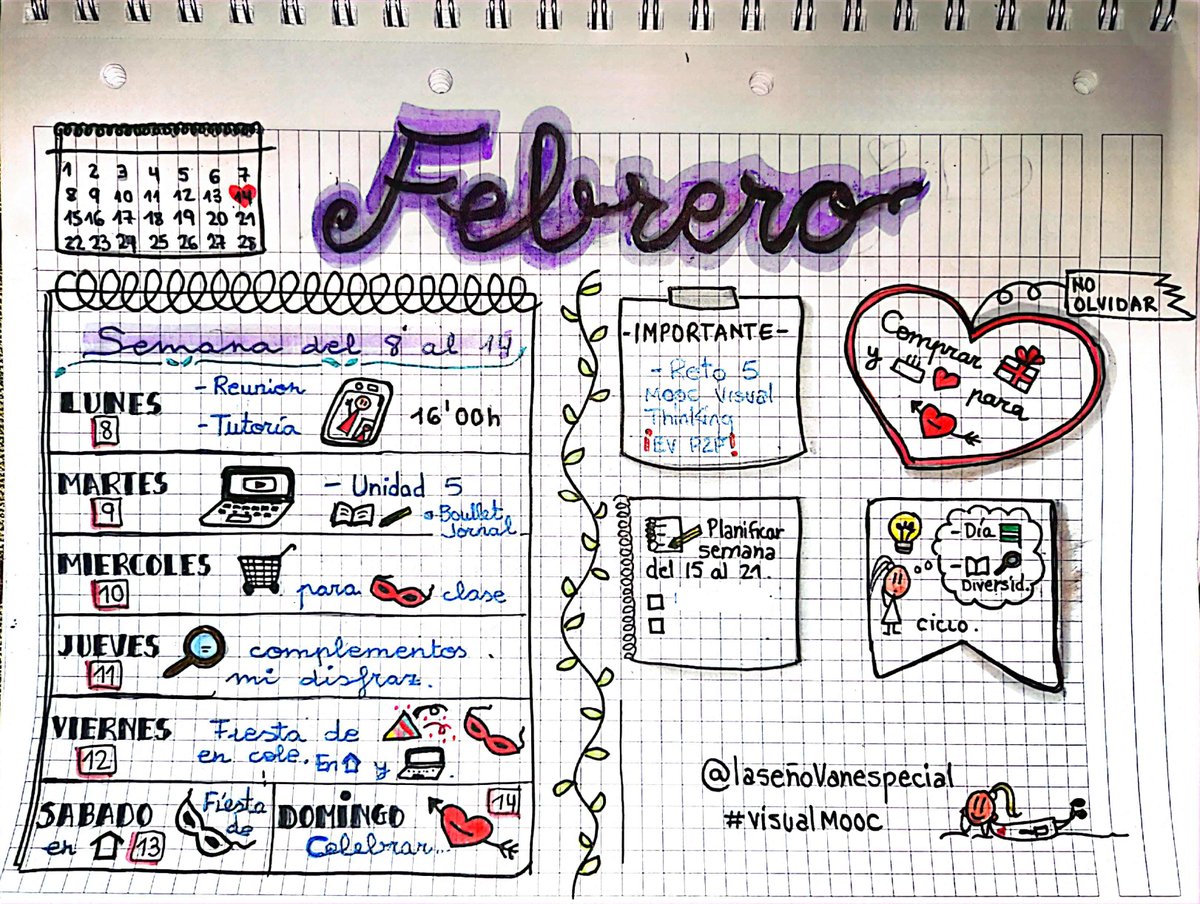 1 2 3 4 5 6 7
8 9 10 11 12 13 14
15 16 17 18 19 20 21
22 23 24 25 26 27 28
Febrero
Semana del 8 al 14
LUNES
8
- Reunion
- Tutoría
16'00h
MARTES
9
- Unidad 5
Boullet
Jornal
MIERCOLES
10
para clase
JUEVES
11
complementos
mi disfraz.
VIERNES
12
Fiesta de
en cole. En y
SABADO
en 13
Fiesta
de
DOMINGO
14
Celebrar...
-IMPORTANTE-
- Reto 5
Mooc Visual
Thinking
¡EV P2P!
NO
OLVIDAR
Comprar
y
para
Planificar
semana
del 15 al 21.
- Día
-
Diversid.
CICLO.
@laseñoVanespecial
#visualMooc